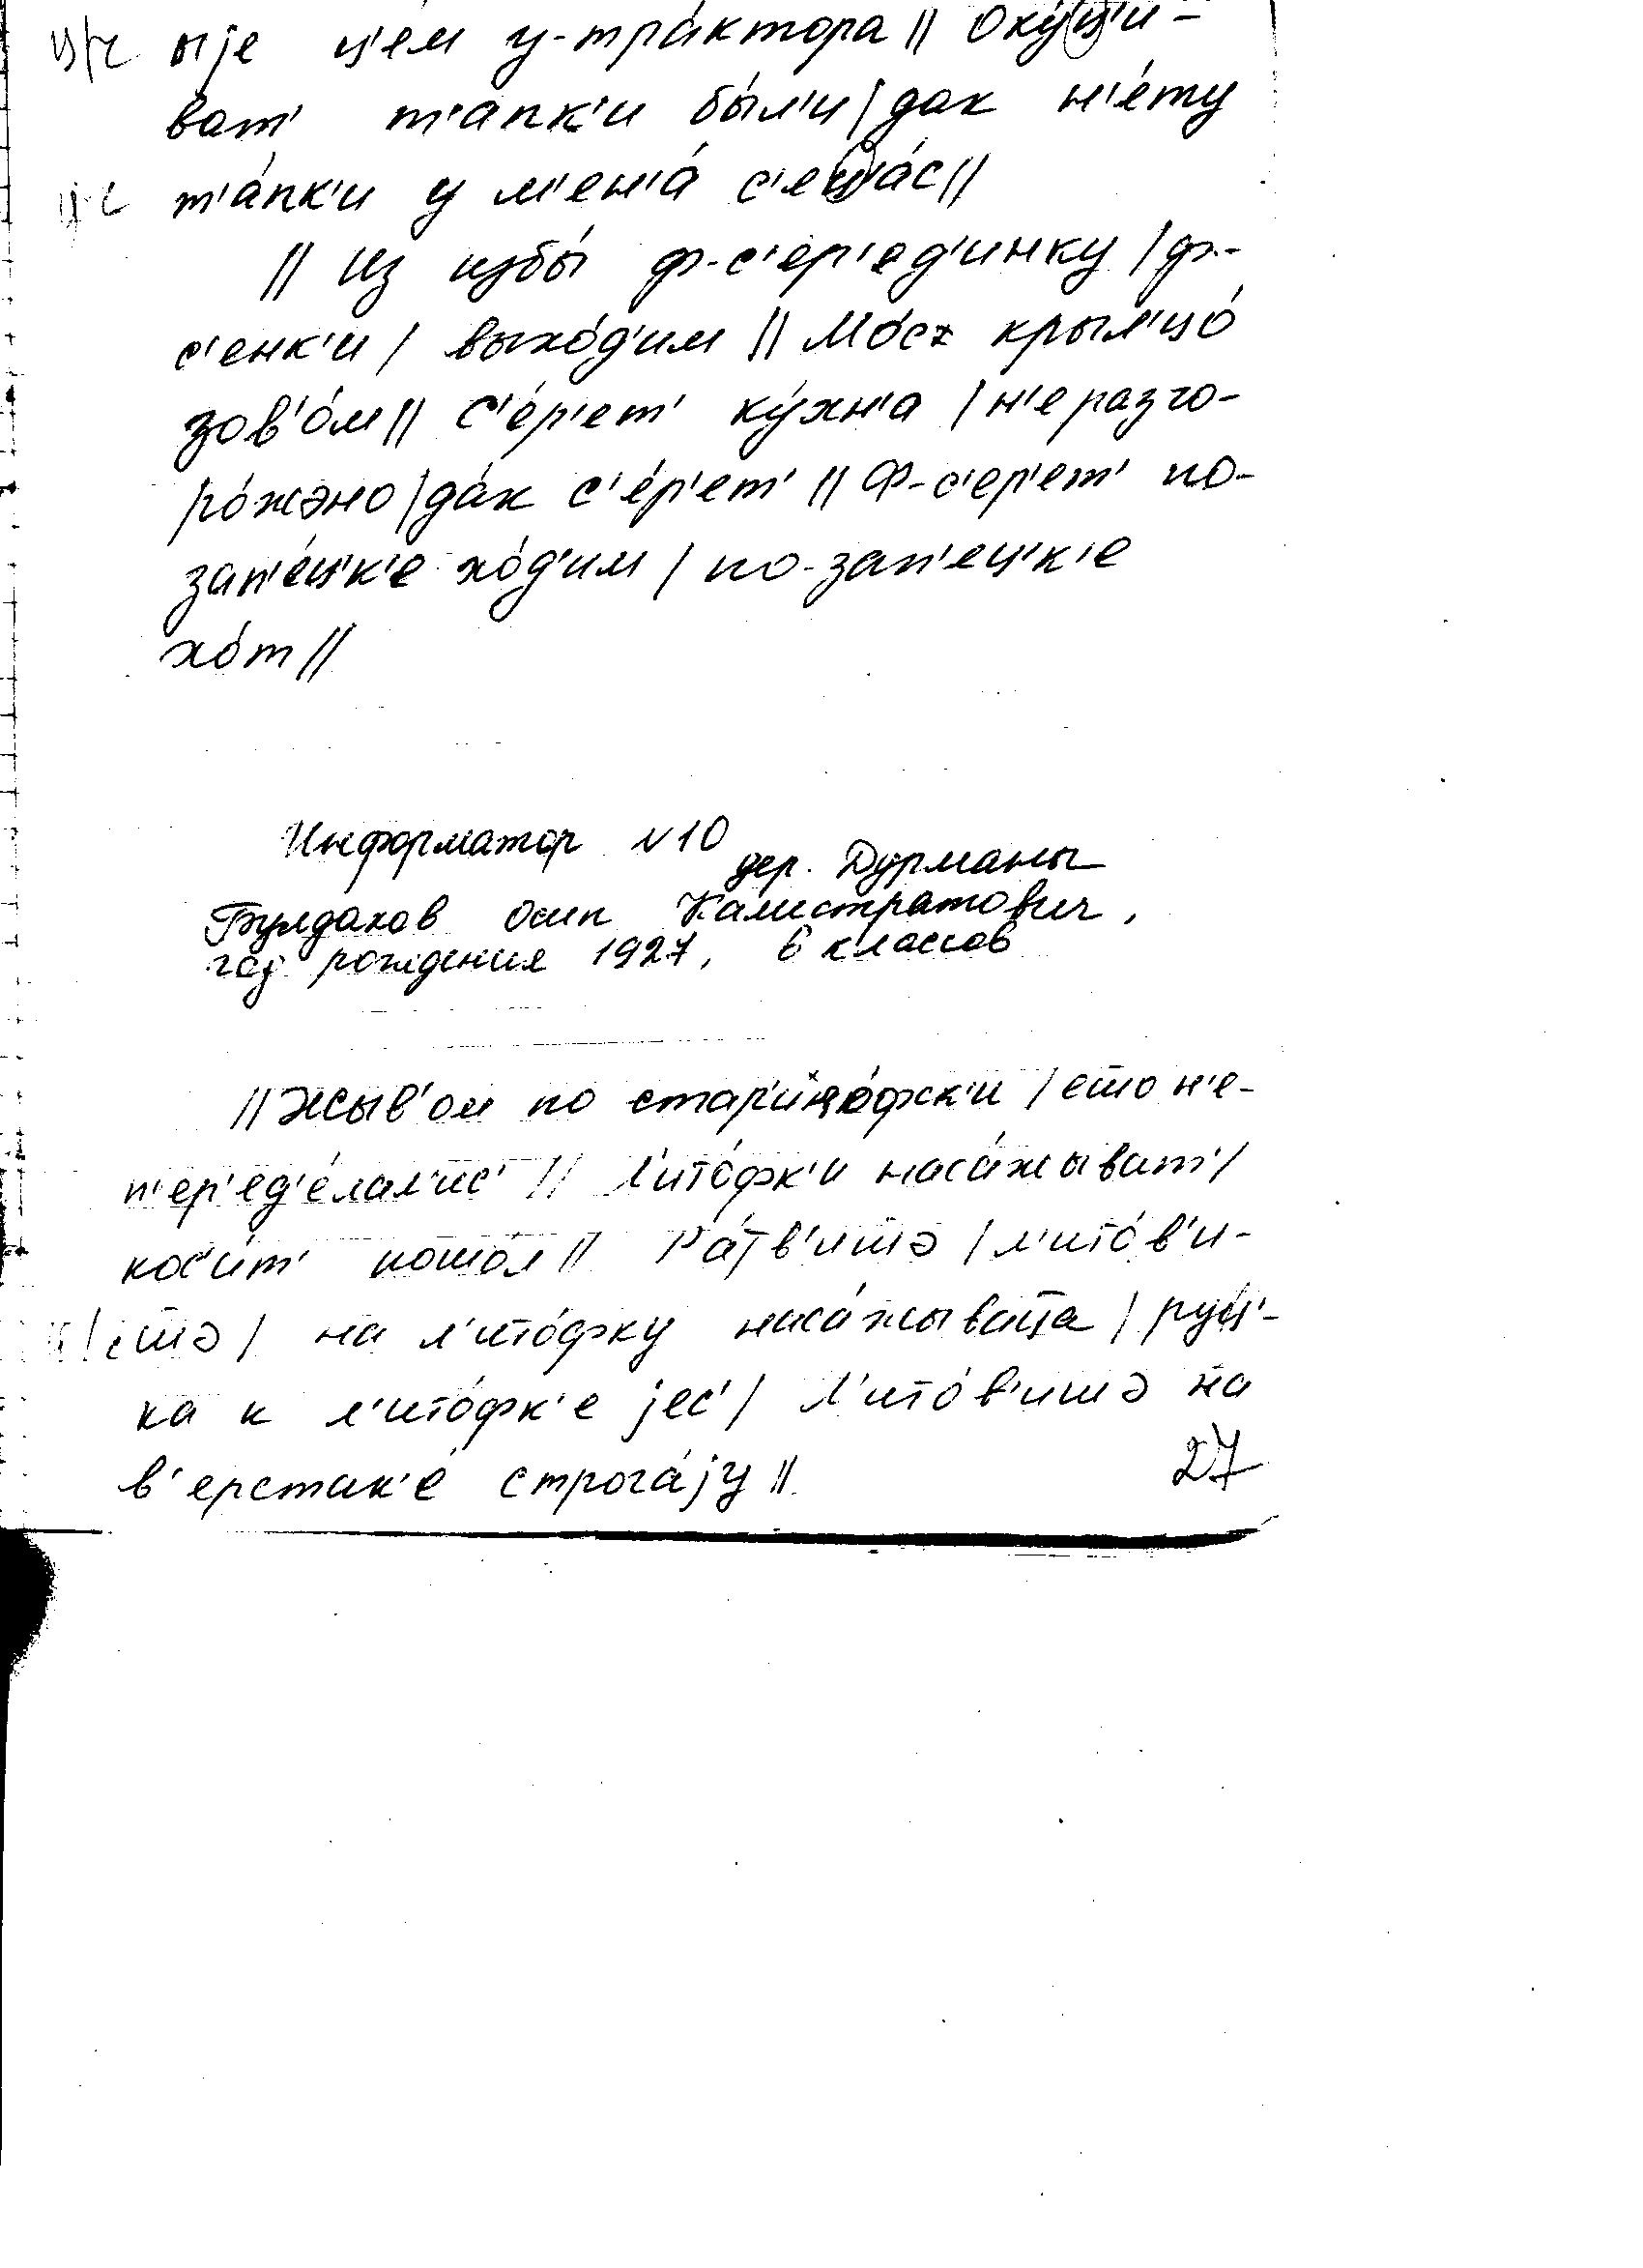 ц/ч ыjе ц'ем у-тра́ктора || Оку́ц'и-
ват' т'апк'и бы́л'и | дак н'е́ту
т'а́пк'и у м'ен'а́ с'ец'а́с ||
|| Из избы́ ф-с'ер'ед'инку | ф-
с'енк'и | выхо́д'им || Мо́ст крыл'цо́
зов'о́м || С'е́р'ет' ку́хн'а | н'е разго-
ро́жэно | да́к с'е́р'ет' || Ф-с'ер'ет' по-
зап'е́ц'к'е хо́д'им | по-зап'ец'к'е
хо́т ||
Информатор N10
дер. Дурманы
Булдаков Осип Калистратович,
год рождения 1927, 6 классов
|| Жыв'ом по стар'ино́фск'и | ето н'е-
п'ер'ед'е́лал'ис' || Л'ито́фк'и наса́жыват' |
кос'и́т' пошо́л || Ра́тв'ишэ | л'ито́в'и-
шэ | на л'ито́фку наса́жываца | руц'-
ка к л'ито́фк'е jес' | Л'ито́в'ишэ на
в'ерстак'е́ строга́jу ||
27